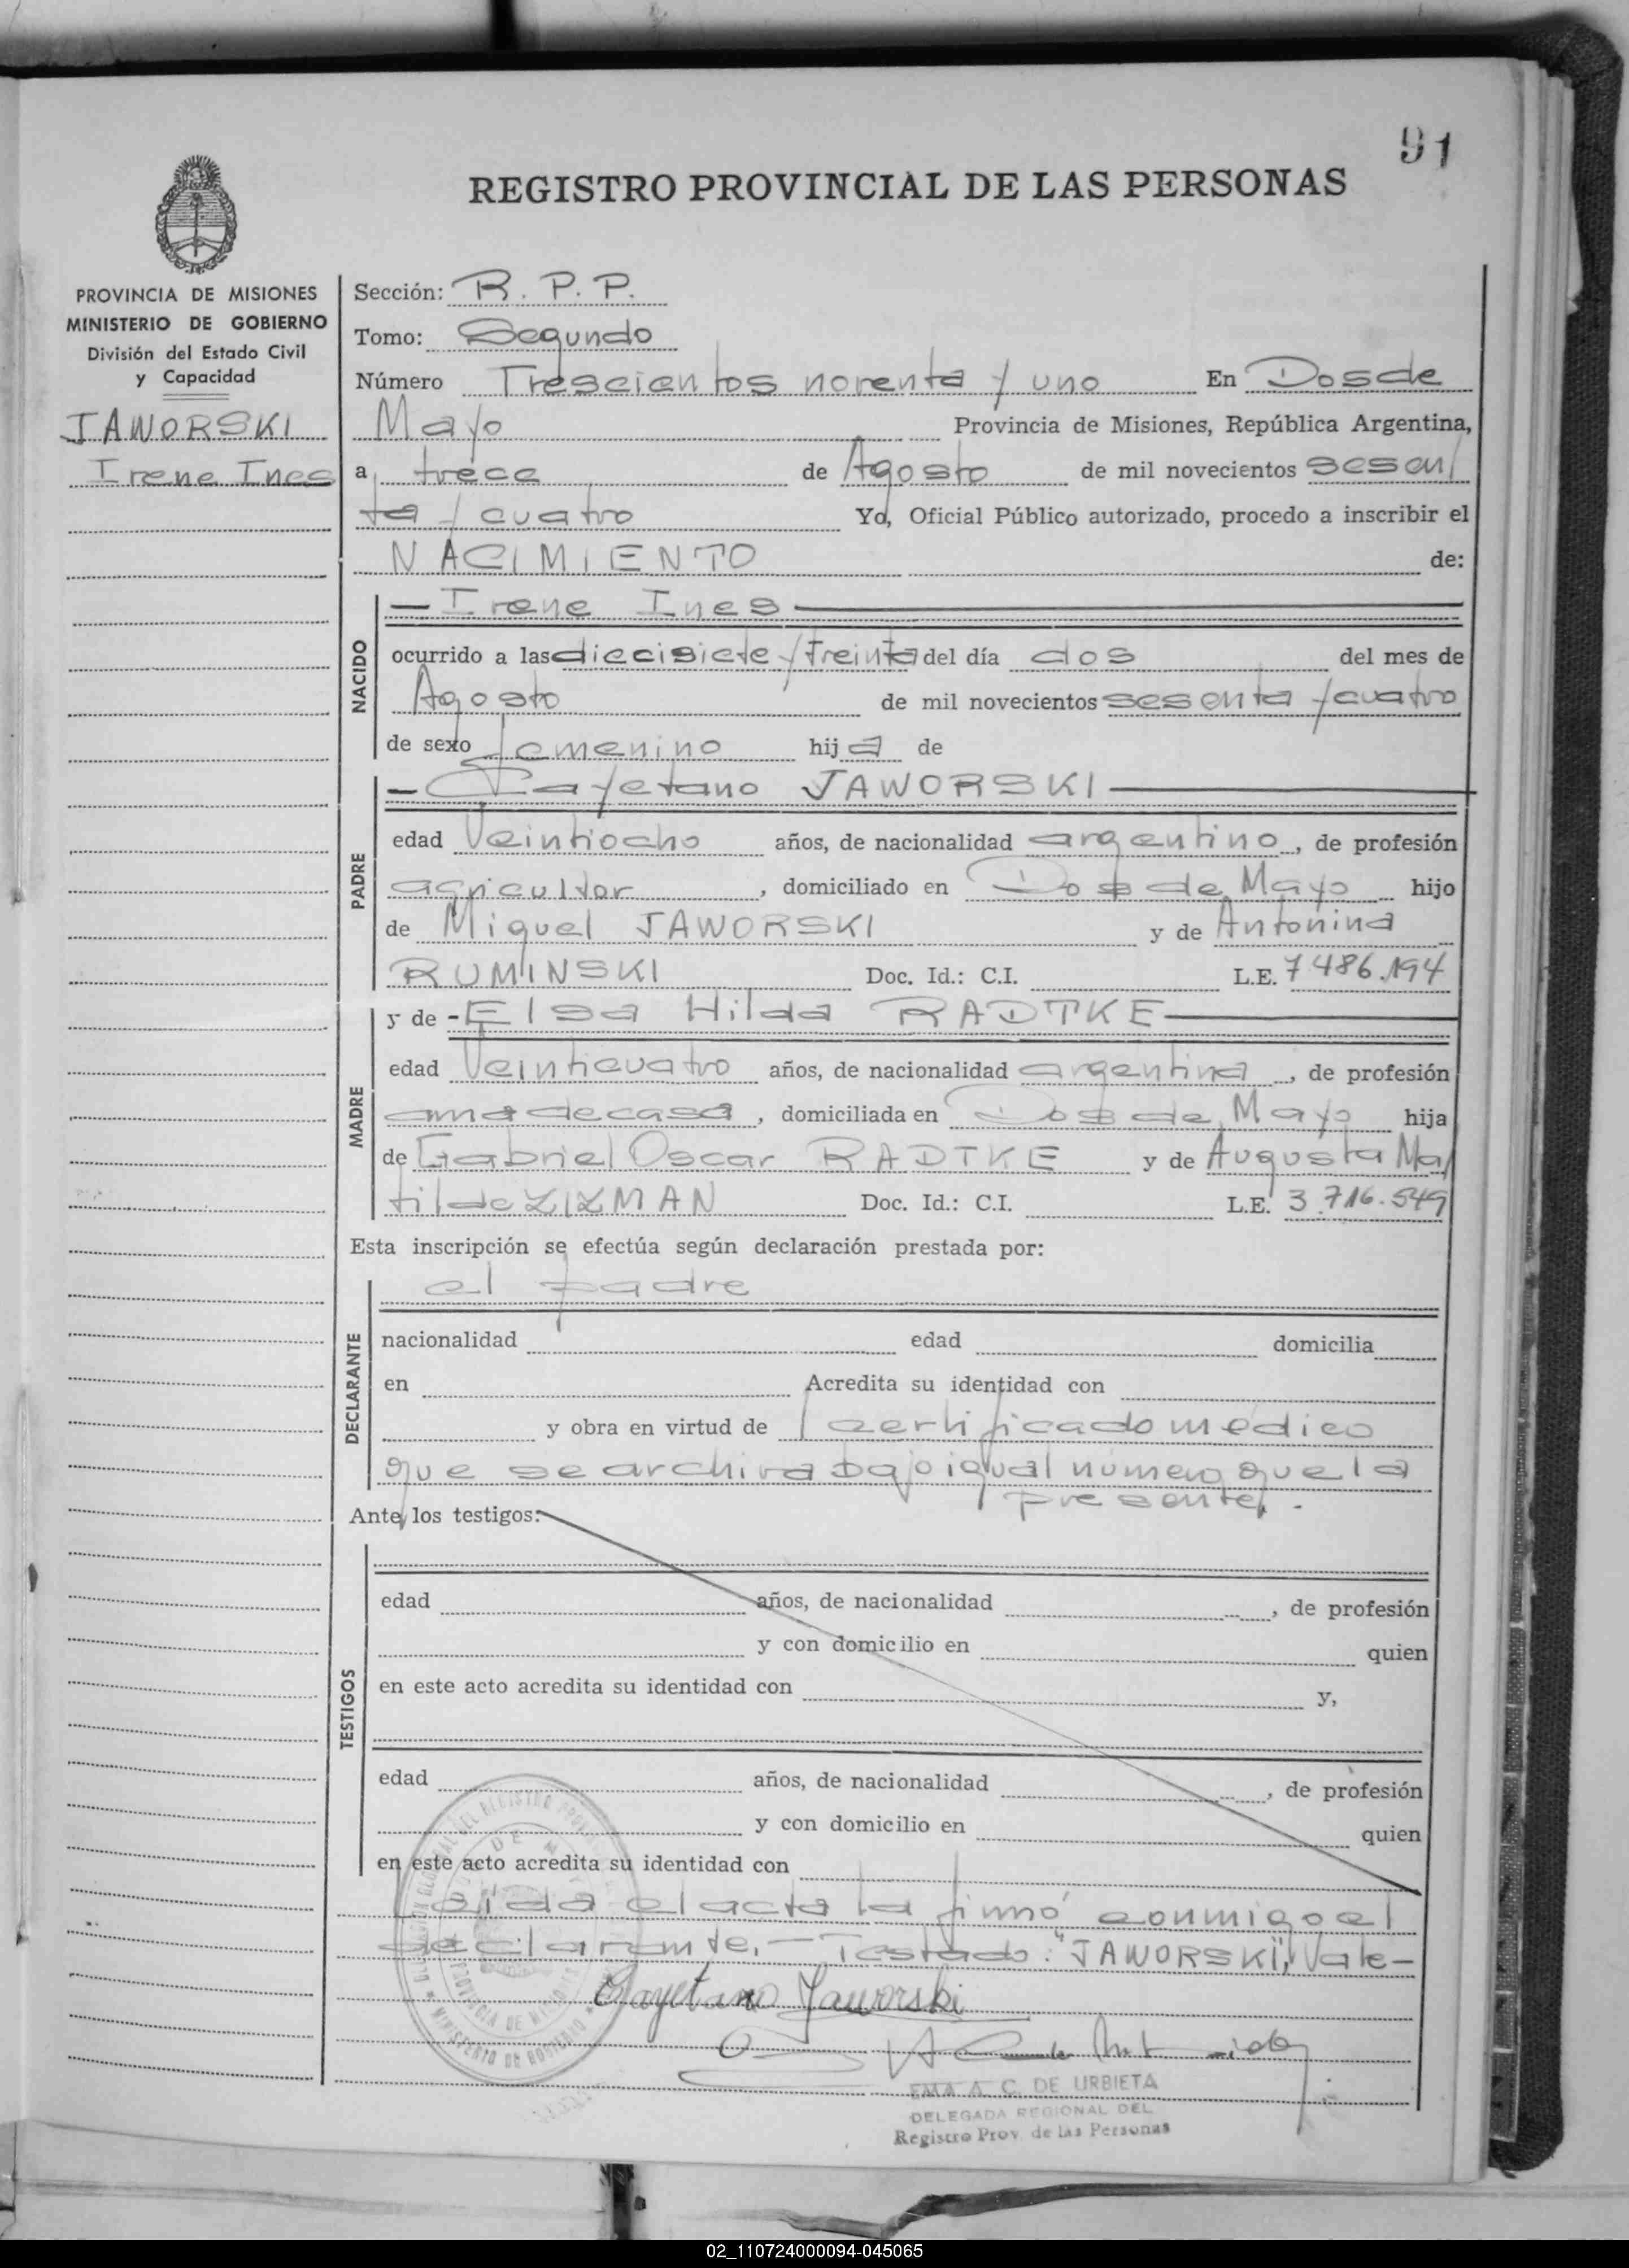 91
REGISTRO PROVINCIAL DE LAS PERSONAS
PROVINCIA DE MISIONES
MINISTERIO DE GOBIERNO
División del Estado Civil
y Capacidad
JAWORSKI
Irene Ines
Sección: R. P. P.
Tomo: Segundo
Número Trescientos noventa y uno En Dos de
Mayo Provincia de Misiones, República Argentina,
a trece de Agosto de mil novecientos sesen/
ta y cuatro Yo, Oficial Público autorizado, procedo a inscribir el
NACIMIENTO de:
NACIDO
— Irene Ines —
ocurrido a las diecisiete y treinta del día dos del mes de
Agosto de mil novecientos sesenta y cuatro
de sexo femenino hija de
PADRE
— Cayetano JAWORSKI —
edad Veintiocho años, de nacionalidad argentino, de profesión
agricultor, domiciliado en Dos de Mayo hijo
de Miguel JAWORSKI y de Antonina
RUMINSKI Doc. Id.: C.I. L.E. 7486.194
MADRE
y de - Elsa Hilda RADTKE —
edad Veinticuatro años, de nacionalidad argentina, de profesión
ama de casa, domiciliada en Dos de Mayo hija
de Gabriel Oscar RADTKE y de Augusta Ma/
tilde ZIZMAN Doc. Id.: C.I. L.E. 3.716.549
Esta inscripción se efectúa según declaración prestada por:
DECLARANTE
el padre
nacionalidad edad domicilia
en Acredita su identidad con
y obra en virtud de certificado medico
que se archiva bajo igual numero que la
presente.
Ante los testigos:
TESTIGOS
edad años, de nacionalidad , de profesión
y con domicilio en quien
en este acto acredita su identidad con y,
edad años, de nacionalidad , de profesión
y con domicilio en quien
en este acto acredita su identidad con
Leida el acta la firmó conmigo el
declarante.— Testado: "JAWORSKI", Vale-
Cayetano Jaworski
EMA A. C. DE URBIETA
DELEGADA REGIONAL DEL
Registro Prov. de las Personas
02_110724000094-045065